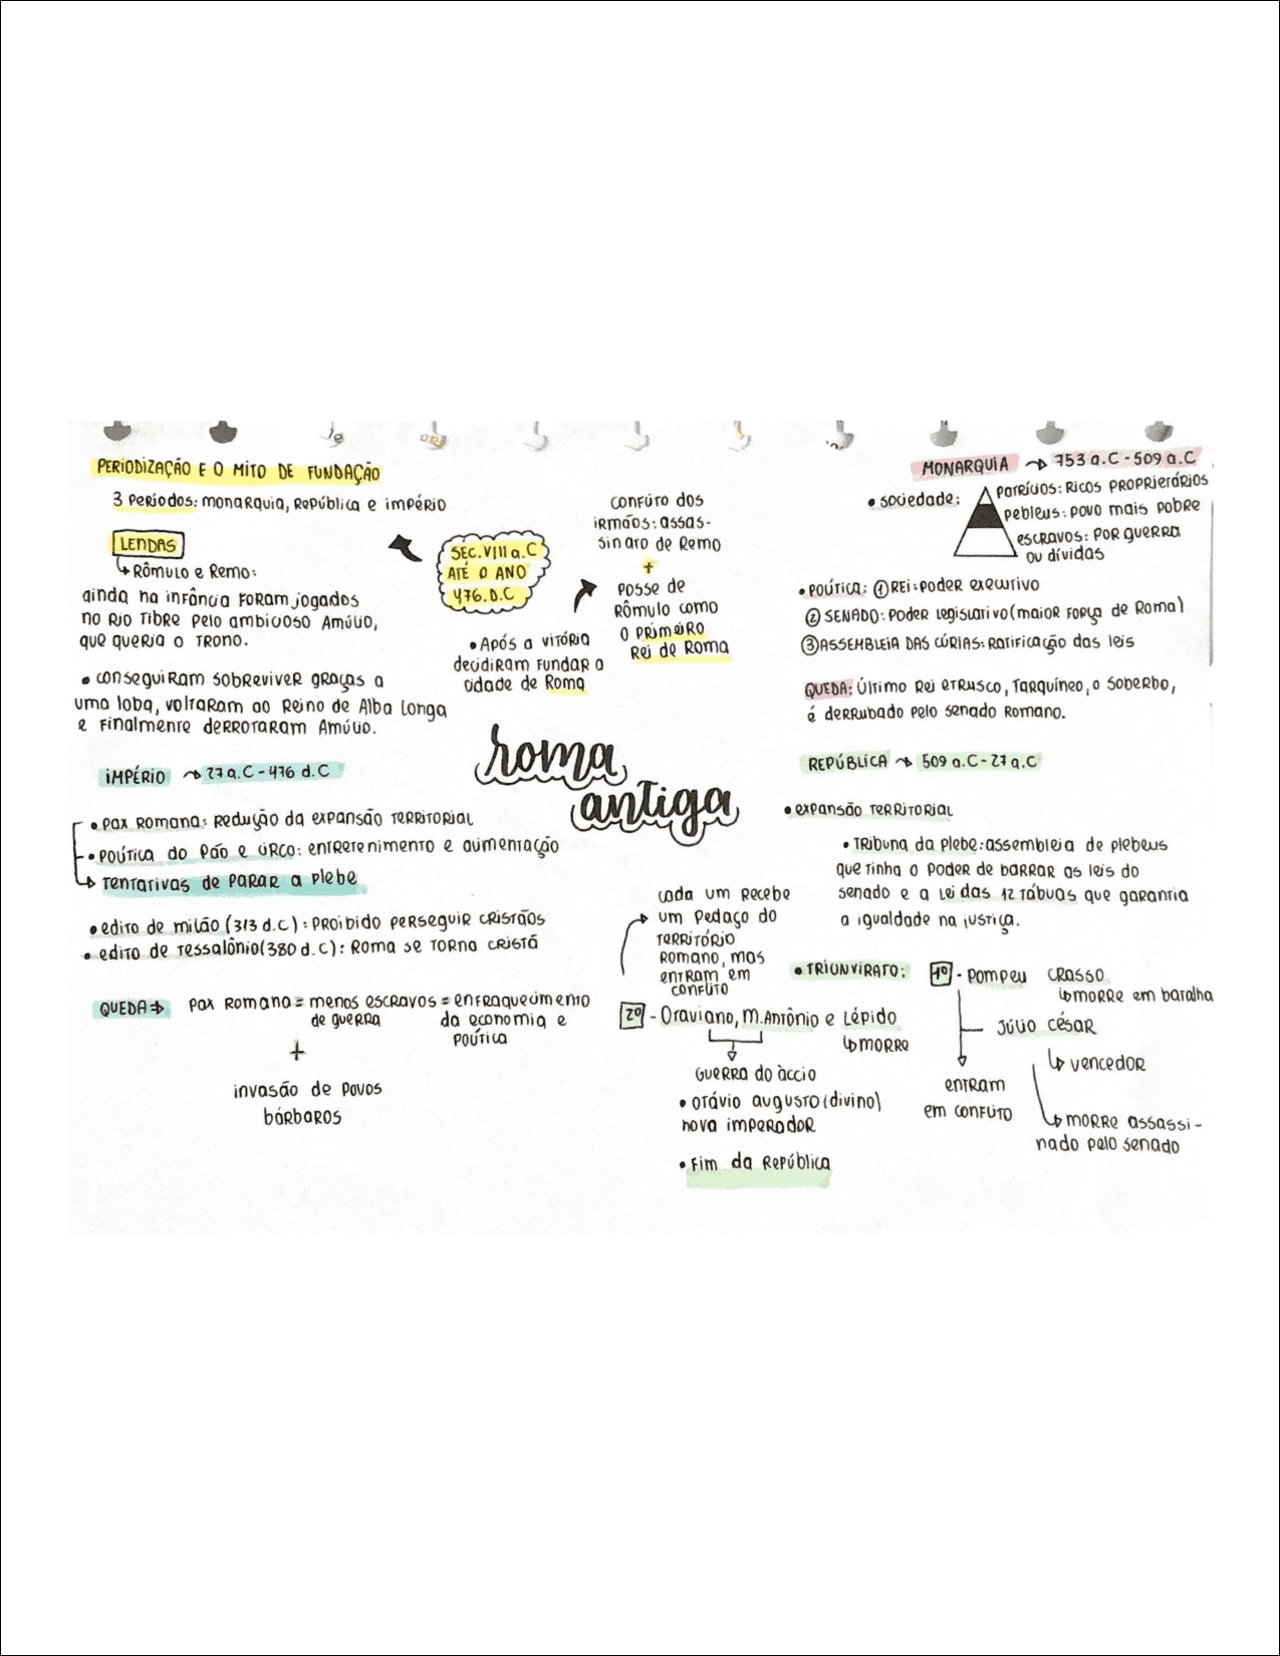 PERIODIZAÇÃO E O MITO DE FUNDAÇÃO
3 PERÍODOS: monarquia, República e império
LENDAS
↳ Rômulo e Remo:
ainda na infância FORAM jogados
no Rio Tibre pelo ambicioso Amúlio,
que queria o TRONO.
• conseguiram sobreviver graças a
uma loba, voltaram ao Reino de Alba Longa
e finalmente DERROTARAM Amúlio.
SÉC. VIII a.C
ATÉ O ANO
476. D.C
• Após a vitória
decidiram fundar a
cidade de Roma
conflito dos
irmãos: assas-
sinato de Remo
+
posse de
Rômulo como
o primeiro
Rei de Roma
MONARQUIA → 753 a.C - 509 a.C
• sociedade:
patrícios: Ricos PROPRIETÁRIOS
pebleus: povo mais pobre
escravos: POR guerra
ou dívidas
• política: ① REI: poder executivo
② SENADO: poder legislativo (maior força de Roma)
③ ASSEMBLEIA DAS CÚRIAS: Ratificação das leis
QUEDA: Último Rei etrusco, Tarquíneo, o soberbo,
é derrubado pelo senado Romano.
roma
antiga
IMPÉRIO → 27 a.C - 476 d.C
• pax Romana: Redução da expansão TERRITORIAL
• política do pão e circo: entretenimento e alimentação
→ Tentativas de PARAR a plebe
• edito de milão (313 d.C): PROIBIDO PERSEGUIR CRISTÃOS
• edito de Tessalônio (380 d.C): Roma se torna cristã
QUEDA → pax Romana = menos escravos = enfraquecimento
de guerra
da economia e
política
+
invasão de povos
bárbaros
REPÚBLICA → 509 a.C - 27 a.C
• expansão TERRITORIAL
• Tribuna da plebe: assembleia de plebeus
que tinha o poder de barrar as leis do
senado e a lei das 12 tábuas que garantia
a igualdade na justiça.
• TRIUNVIRATO:
1º - Pompeu
Crasso
↳ morre em batalha
Júlio César
↳ vencedor
↳ morre assassi-
nado pelo senado
entram
em conflito
2º - Otaviano, M. Antônio e Lépido
↳ morre
cada um recebe
um pedaço do
TERRITÓRIO
Romano, mas
entram em
conflito
Guerra do àccio
• otávio augusto (divino)
nova imperador
• Fim da República